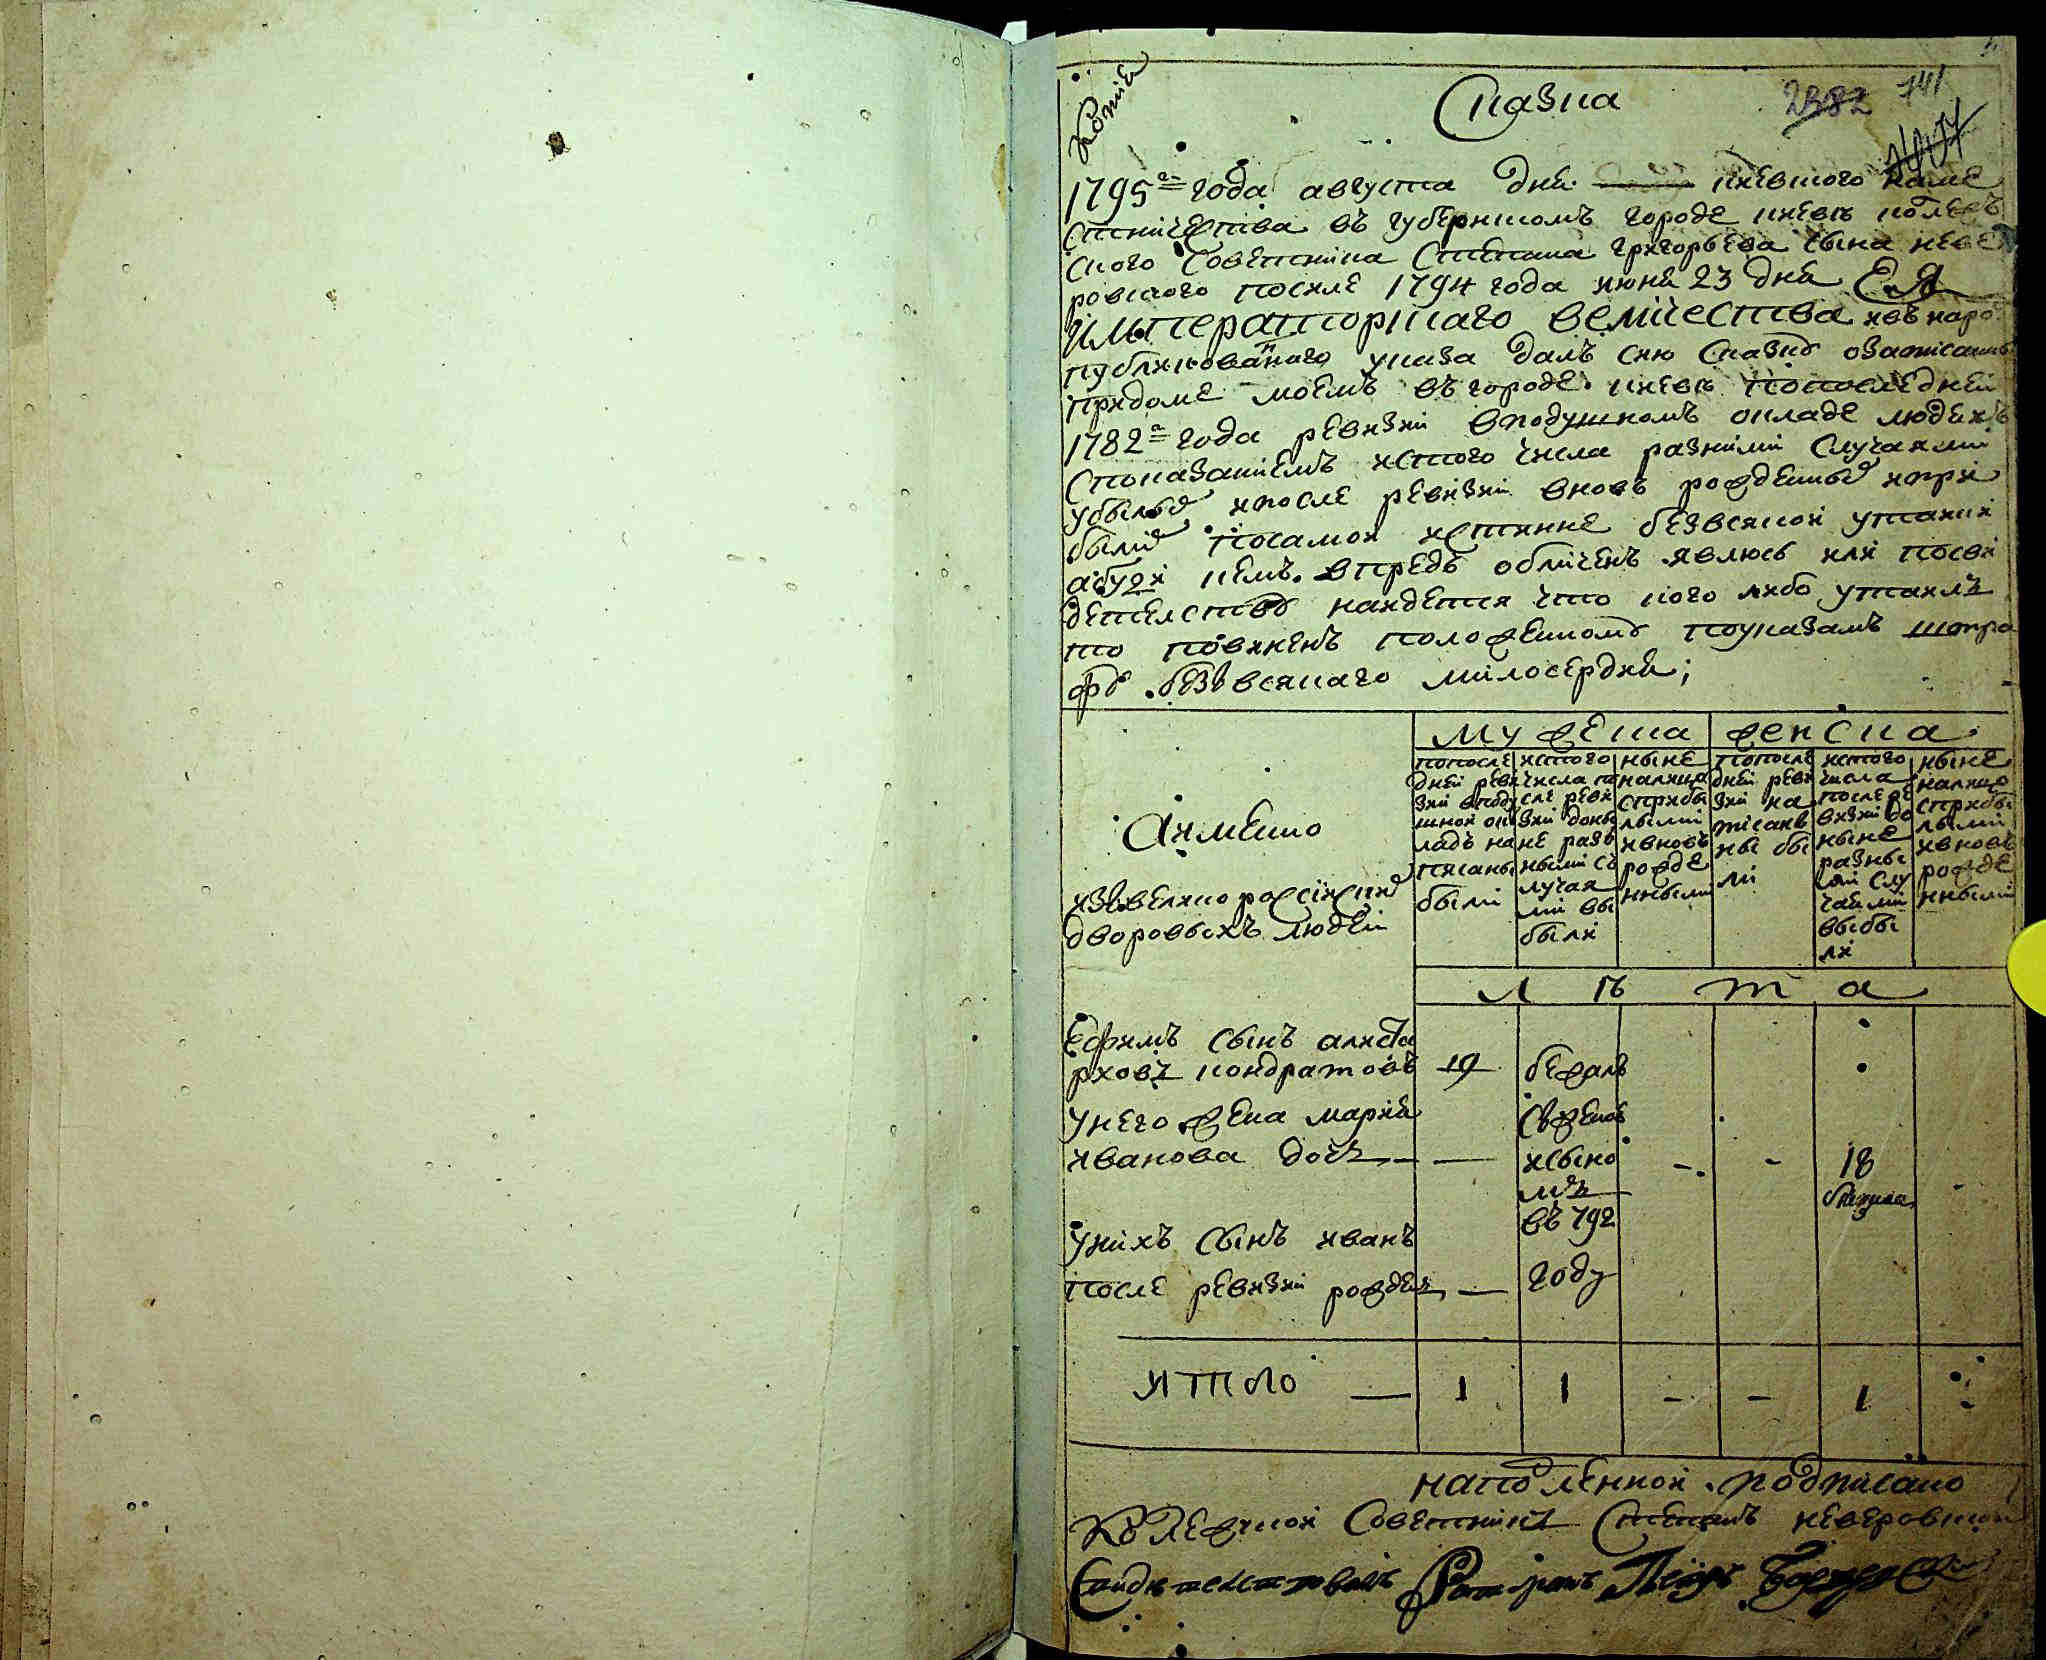 Копия
Сказка
2382 741
1795го года августа дня киевского наме
стничества въ губернскомъ городе киевѣ колеж
ского Советника Степана григорьева сына неве
ровского после 1794 года июня 23 дня Ея
Императорскаго величества изъ наро
публикованнаго указа далъ сию Сказку озаписанныхъ
придоме моемъ въ городе киевѣ попоследней
1782го года ревизии вподушномъ окладе людяхъ
Споказаниемъ изтого числа разними Случаями
убылые ипосле ревизии вновь рожденные ипри
былие посамой истинне безвсякой утайки
абуде кемъ впредь обличенъ явлюсь или посви
детелству найдется что кого либо утаилъ
то повиненъ положенному поуказамъ штра
фу безовсякаго милосердия;
мужеска женска
Аименно
изъвеликороссийских
дворовыхъ людей
попосле дней реви зии вподу шной ок ладъ на писаны были
изтого числа по сле реви зии доны не разъ ными съ лучая ми вы были
ныне налицо сприбы лыми ивновъ рожде нными
попосле дней реви зии на писаны ны бы ли
изтого числа после ре визии до ныне разны ми слу чаями выбы ли
ныне налицо сприбы лыми ивновъ рожде нными
л ѣ т а
Ефимъ сынъ алиста
рховъ кондратовъ 19 бежалъ
унего жена мария сженою
иванова дочь — — исыно - - 18
мъ бежала
въ 792
унихъ сынъ иванъ
после ревизии рожден — году
итого — 1 1 - - 1 -
наподленной подписано
Колежской Советникъ Степанъ неверовской
Свидетелствовалъ Ротмистръ Петръ